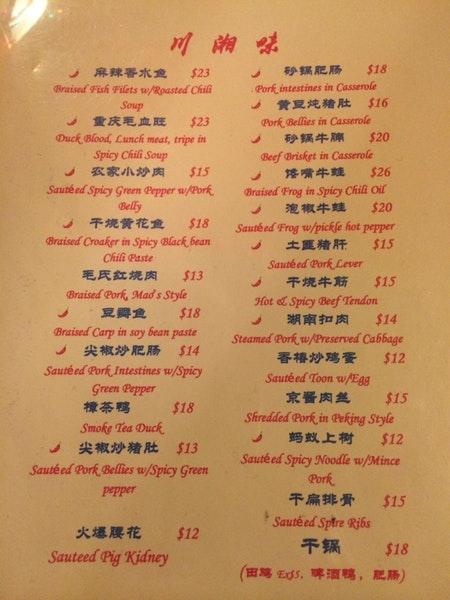 川湘味
麻辣香水鱼 $23
Braised Fish Filets w/Roasted Chili
Soup
重庆毛血旺 $23
Duck Blood, Lunch meat, tripe in
Spicy Chili Soup
农家小炒肉 $15
Sautéed Spicy Green Pepper w/Pork
Belly
干烧黄花鱼 $18
Braised Croaker in Spicy Black bean
Chili Paste
毛氏红烧肉 $13
Braised Pork, Mao's Style
豆瓣鱼 $18
Braised Carp in soy bean paste
尖椒炒肥肠 $14
Sautéed Pork Intestines w/Spicy
Green Pepper
樟茶鸭 $18
Smoke Tea Duck
尖椒炒猪肚 $13
Sautéed Pork Bellies w/Spicy Green
pepper
火爆腰花 $12
Sauteed Pig Kidney
砂锅肥肠 $18
Pork intestines in Casserole
黄豆炖猪肚 $16
Pork Bellies in Casserole
砂锅牛腩 $20
Beef Brisket in Casserole
馋嘴牛蛙 $26
Braised Frog in Spicy Chili Oil
泡椒牛蛙 $20
Sautéed Frog w/pickle hot pepper
土匪猪肝 $15
Sautéed Pork Lever
干烧牛筋 $15
Hot & Spicy Beef Tendon
湖南扣肉 $14
Steamed Pork w/Preserved Cabbage
香椿炒鸡蛋 $12
Sautéed Toon w/Egg
京酱肉丝 $15
Shredded Pork in Peking Style
蚂蚁上树 $12
Sautéed Spicy Noodle w/Mince
Pork
干扁排骨 $15
Sautéed Spire Ribs
干锅 $18
(田鸡 Ex$5, 啤酒鸭, 肥肠)